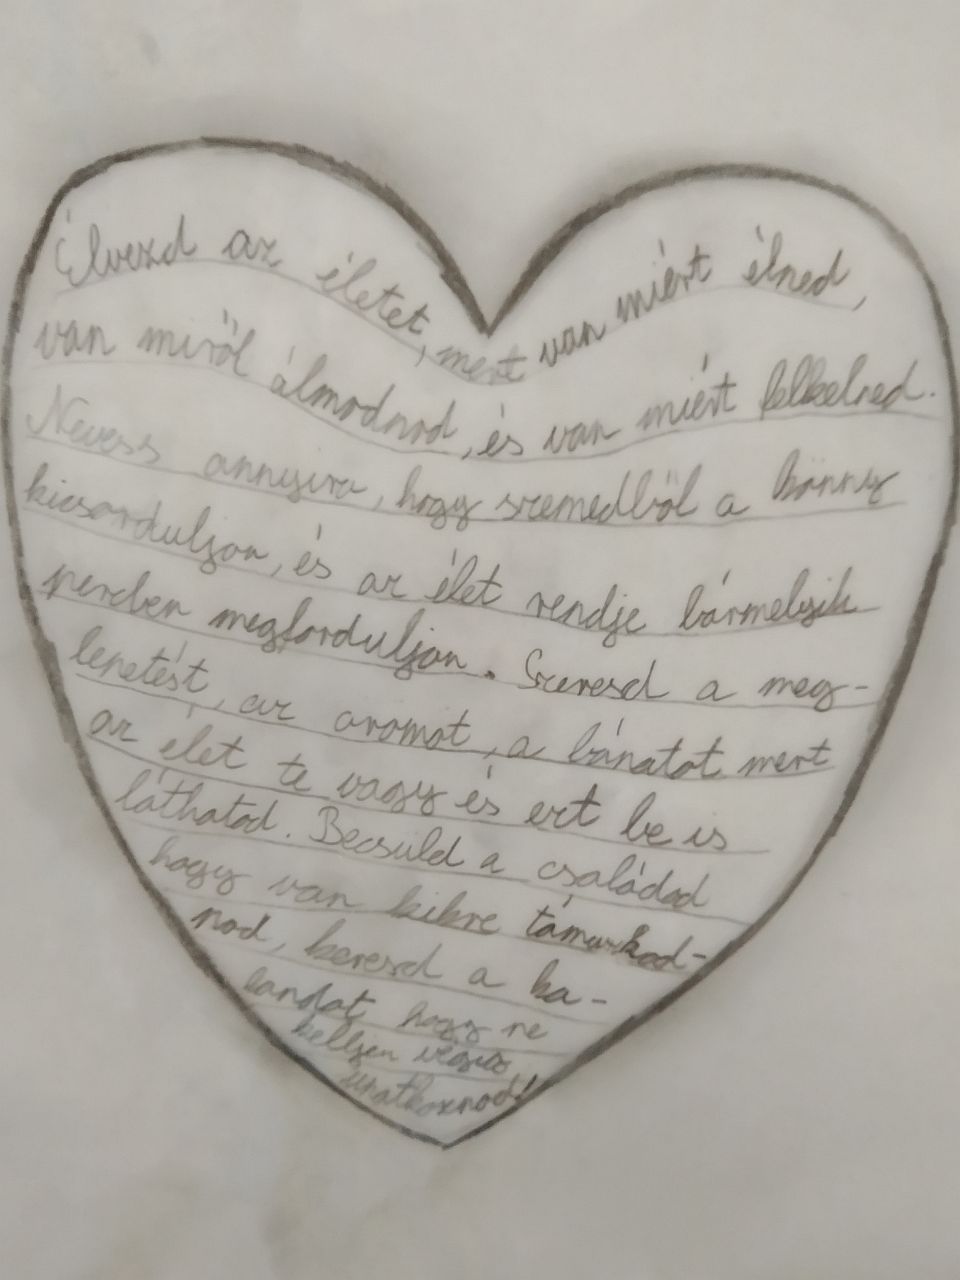 Élvezd az életet, mert van miért élned,
van miről álmodnod, és van miért felkelned.
Nevess annyira, hogy szemedből a könny
kicsorduljon, és az élet rendje bármelyik
percben megforduljon. Szeresd a meg-
lepetést, az aromot, a bánatot mert
az élet te vagy és ezt be is
láthatod. Becsüld a családod
hogy van kikre támaszkod-
nod, keresd a ka-
landot, hogy ne
kelljen végig
unatkoznod!